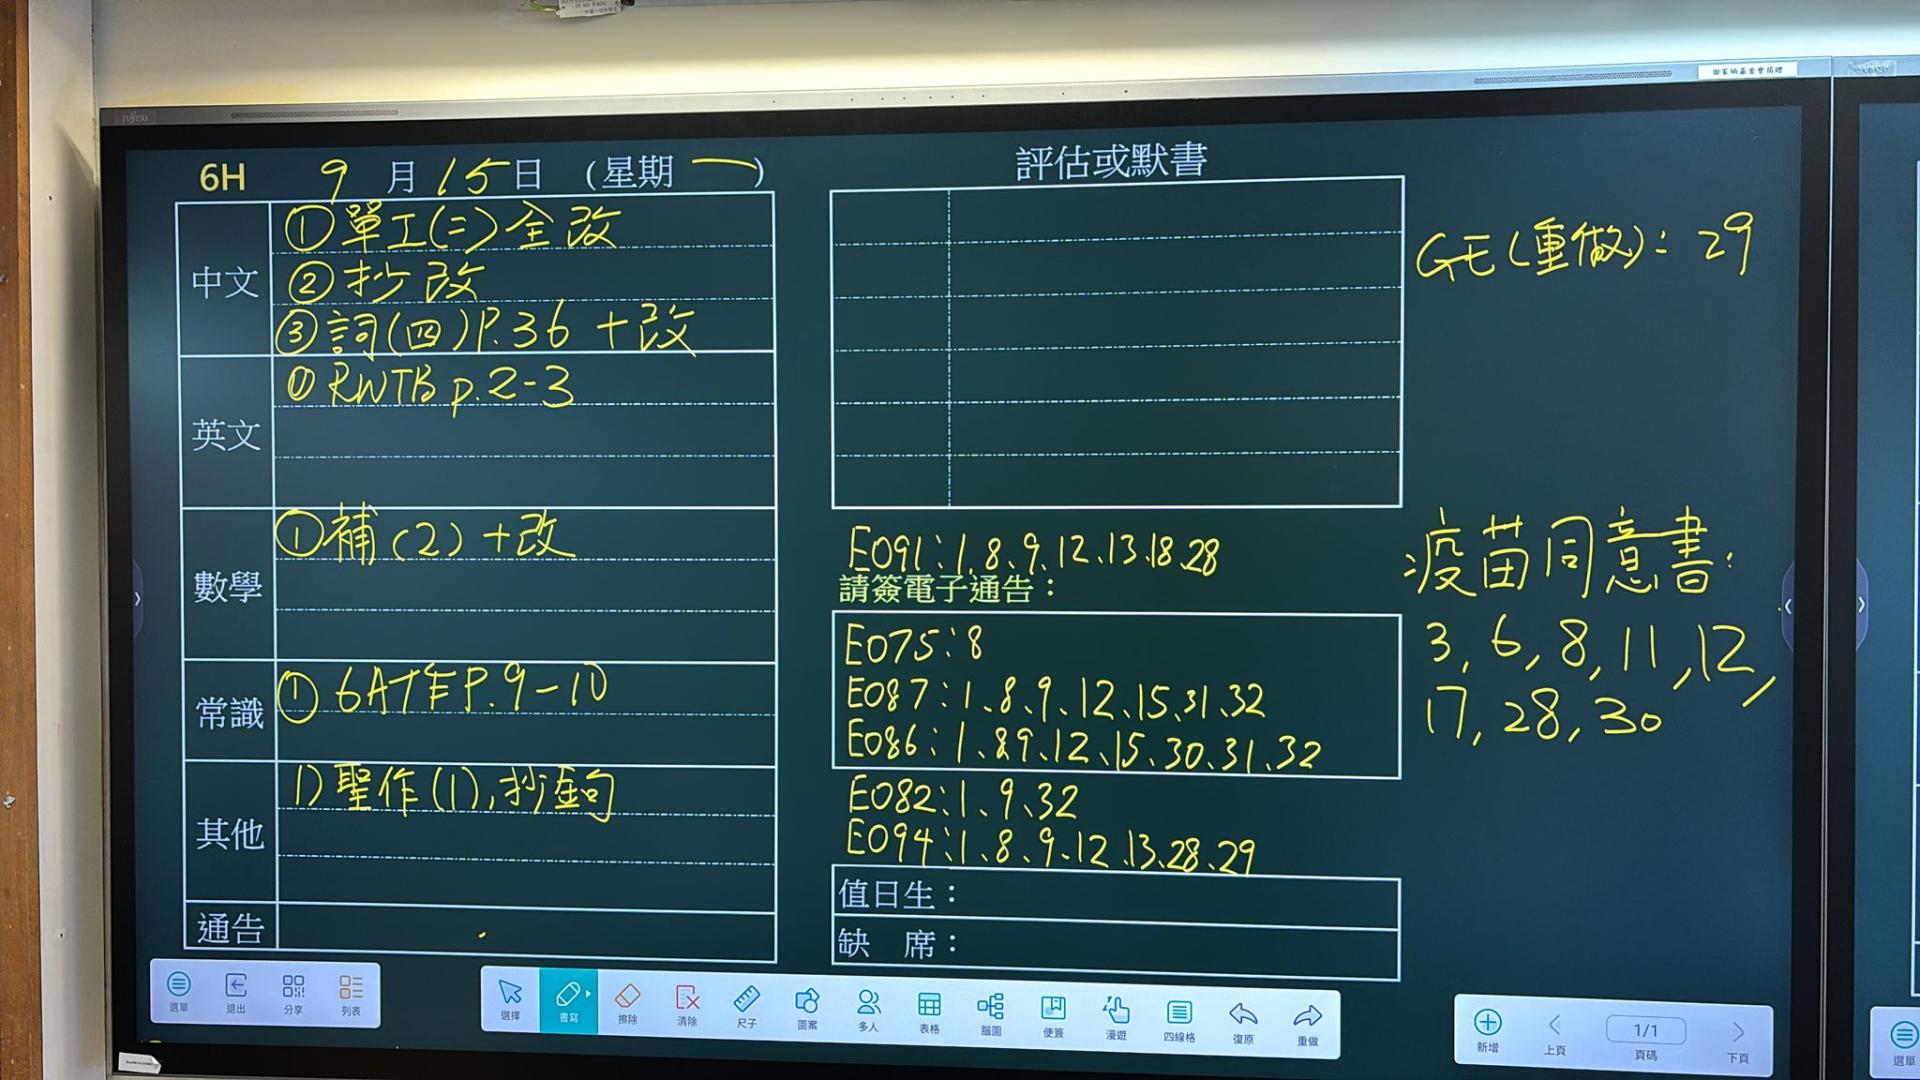 FUJITSU
6H 9月15日（星期一）
中文
①單工(二)全改
②抄改
③詞(四)P.36+改
英文
①RWTB p.2-3
數學
①補(2)+改
常識
①6A作P.9-10
其他
1)聖作(1),抄金句
通告
評估或默書
GE(重做): 29
E091:1、8、9、12、13、18、28
請簽電子通告：
E075:8
E087:1、8、9、12、15、31、32
E086:1、8、9、12、15、30、31、32
E082:1、9、32
E094:1、8、9、12、13、28、29
疫苗同意書:
3, 6, 8, 11, 12,
17, 28, 30
值日生：
缺 席：
選單 退出 分享 列表
選擇 書寫 擦除 清除 尺子 圖案 多人 表格 腦圖 便簽 漫遊 四線格 復原 重做
新增 上頁 1/1 頁碼 下頁
選單